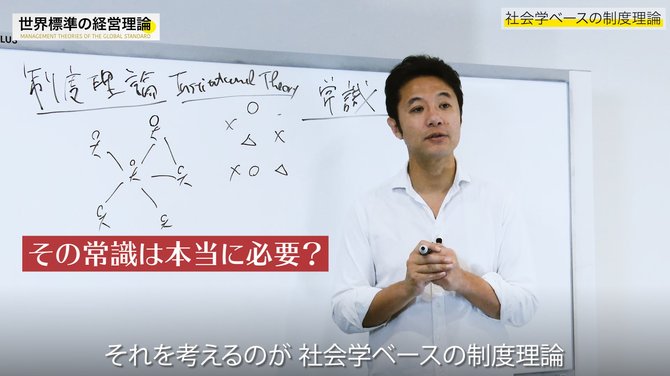 世界標準の経営理論
MANAGEMENT THEORIES OF THE GLOBAL STANDARD
社会学ベースの制度理論
制度理論 Institutional Theory 常識
その常識は本当に必要？
それを考えるのが 社会学ベースの制度理論